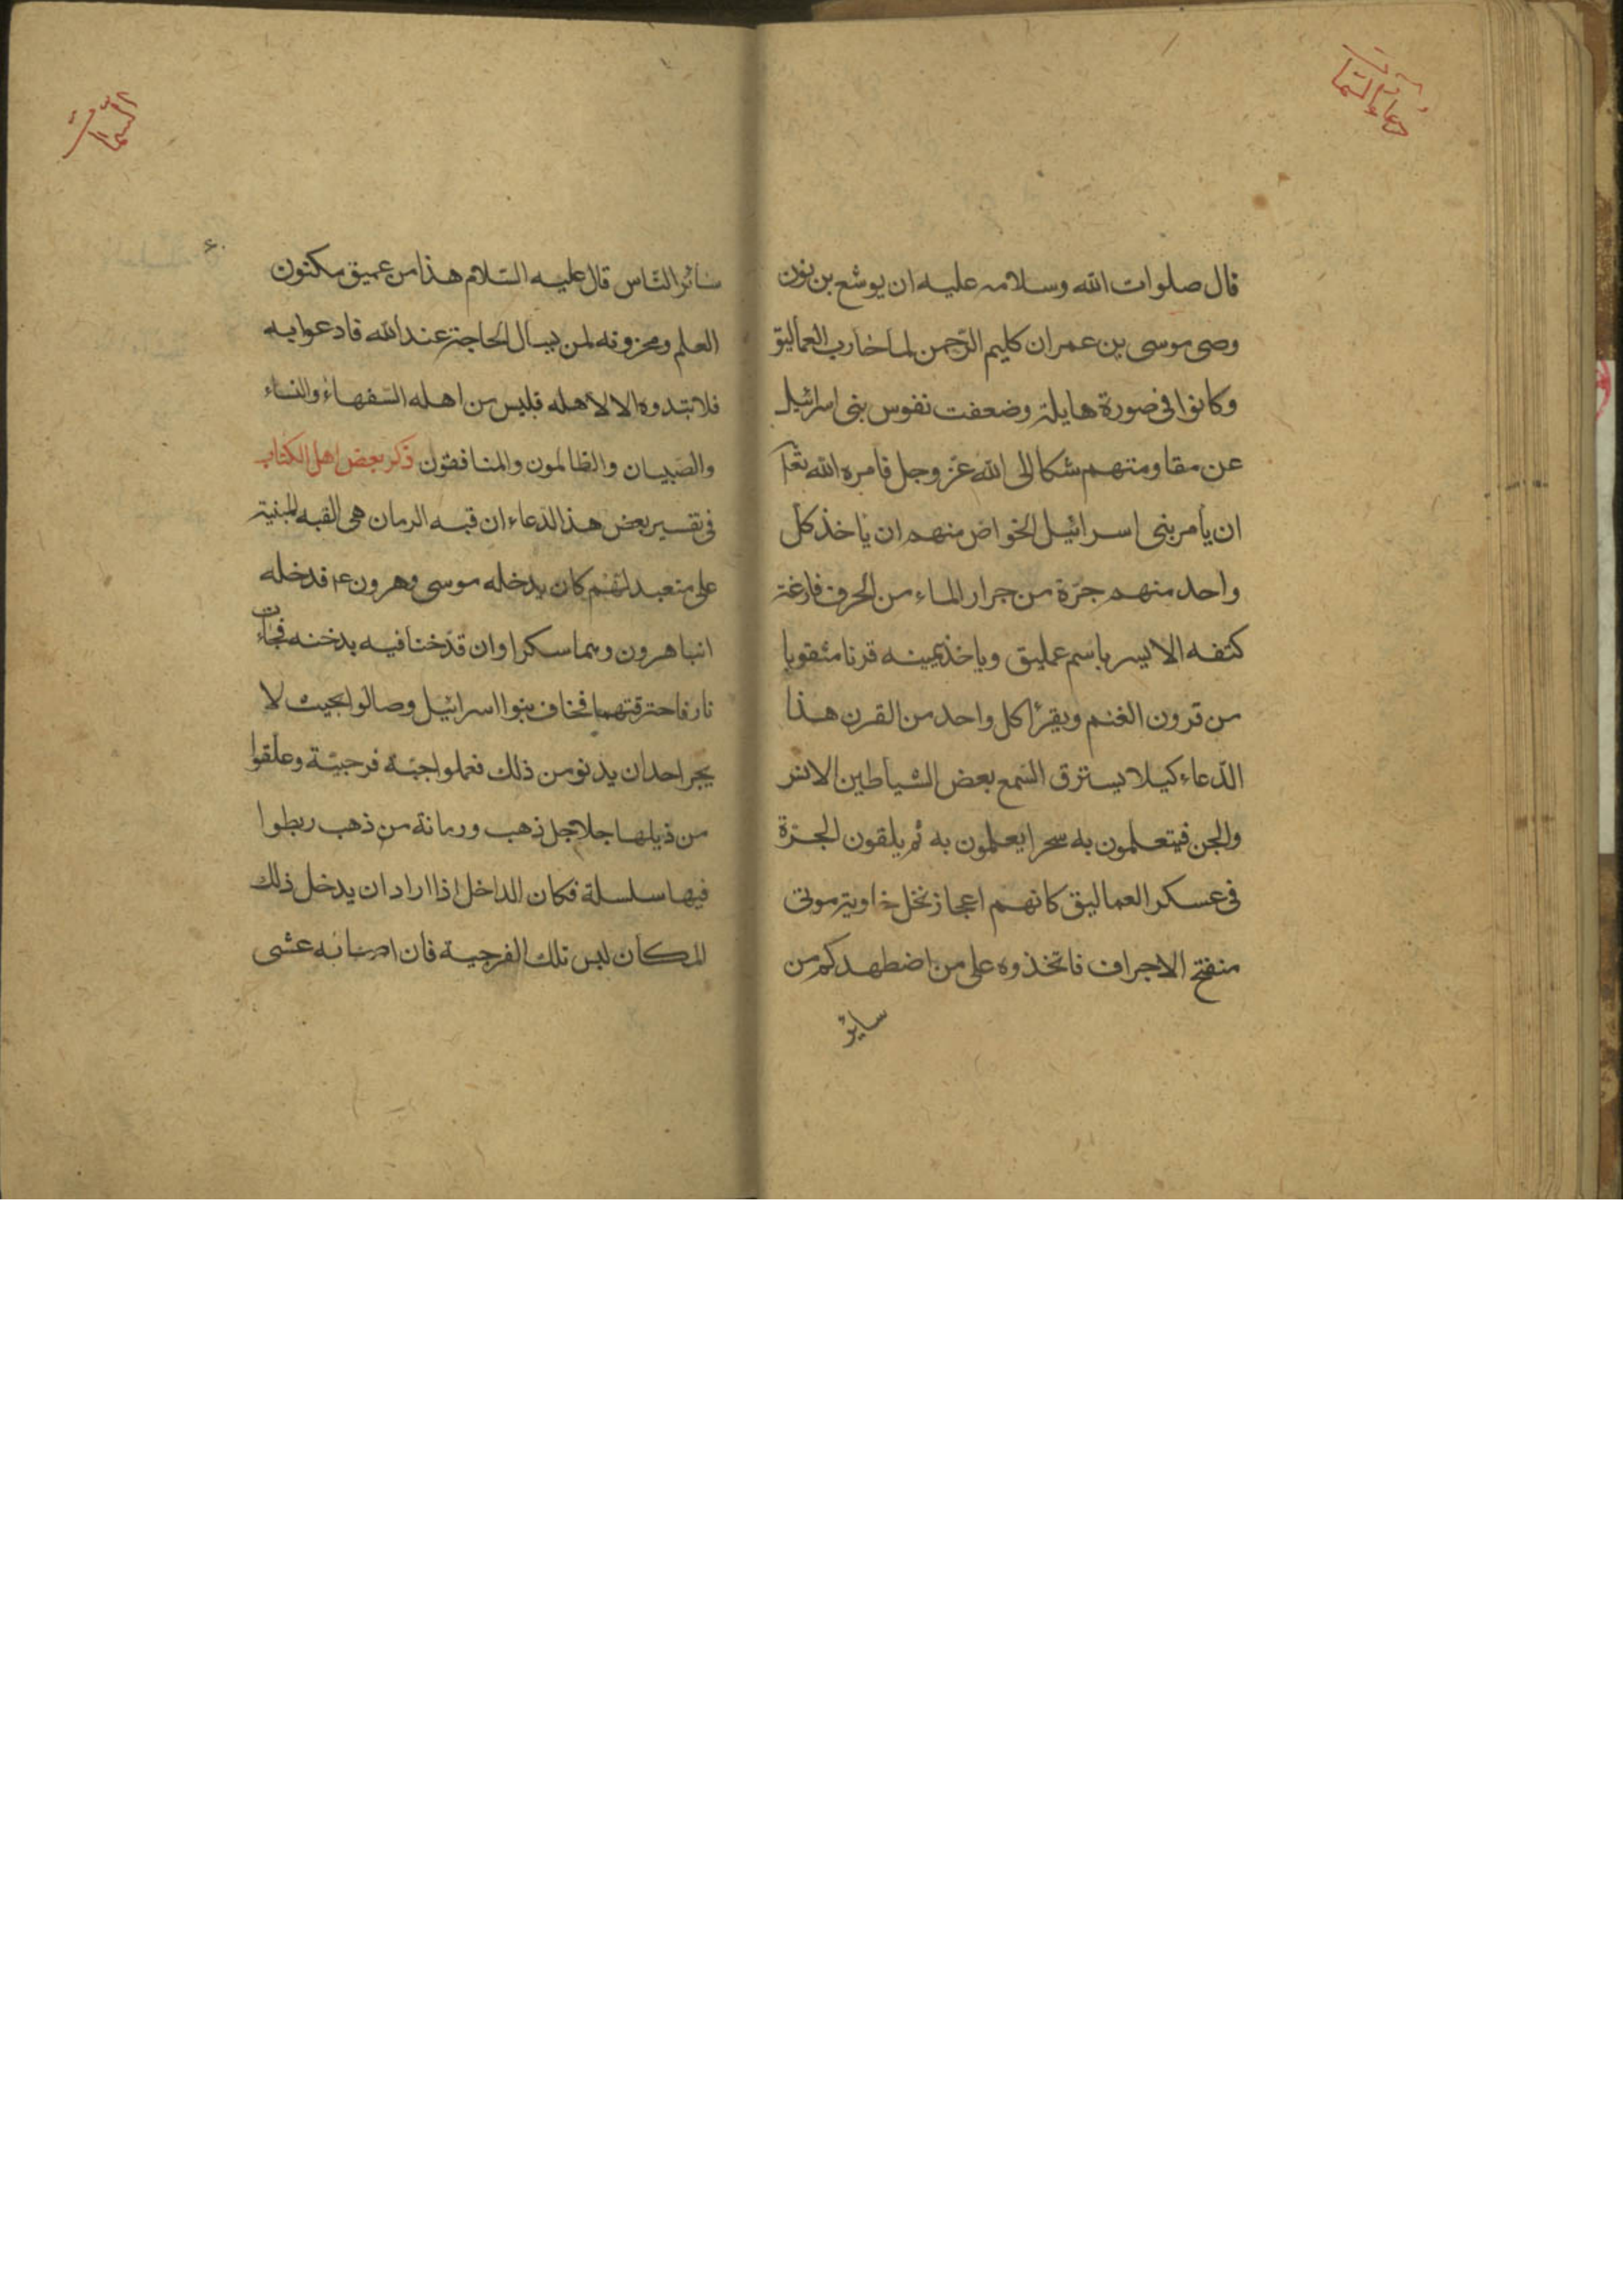 دعاء السمات
قال صلوات الله وسلامه عليه ان يوشع بن نون
وصى موسى بن عمران كليم الرّحمن لما حارب العماليق
وكانوا فى صورة هايلة وضعفت نفوس بنى اسرائيل
عن مقاومتهم شكا الى الله عزّ وجل فامره الله تعا
ان يأمر بنى اسرائيل الخواص منهم ان ياخذ كل
واحد منهم جرّة من جرار الماء من الخزف فارغة
كتفه الايسر باسم عمليق وياخذ بيمينه قرنا مثقوبا
من قرون الغنم ويقرأ كل واحد من القرن هذا
الدّعاء كيلا يسترق السّمع بعض الشياطين الانس
والجن فيتعلمون به سحرا يعلمون به ثم يلقون الجرّة
فى عسكر العماليق كانهم اعجاز نخل خاوية موتى
منفتخ الاجراف فاتخذوه على من اضطهدكم من
سائر
السمات
۶۰
سائر النّاس قال عليه السّلام هذا من عميق مكنون
العلم ومخزونه لمن يسأل الحاجة عند الله فادعوا به
فلا تبدوه الا لاهله فليس من اهله السّفهاء والنساء
والصّبيان والظالمون والمنافقون ذكر بعض اهل الكتاب
فى تفسير بعض هذا الدّعاء ان قبه الرمان هى القبه المبنية
على متعبد لهم كان يدخله موسى وهرون ع فدخله
ابنا هرون وهما سكراوان قدّخنا فيه بدخنه فجاءت
نار فاحترقتهما فخاف بنوا اسرائيل وصالوا بحيث لا
يجر احد ان يدنو من ذلك فعملوا جبّة فرجيّة وعلّقوا
من ذيلها جلاجل ذهب ورمانة من ذهب ربطوا
فيها سلسلة فكان الداخل اذا اراد ان يدخل ذلك
المكان لبس تلك الفرجية فان اصابه غشى